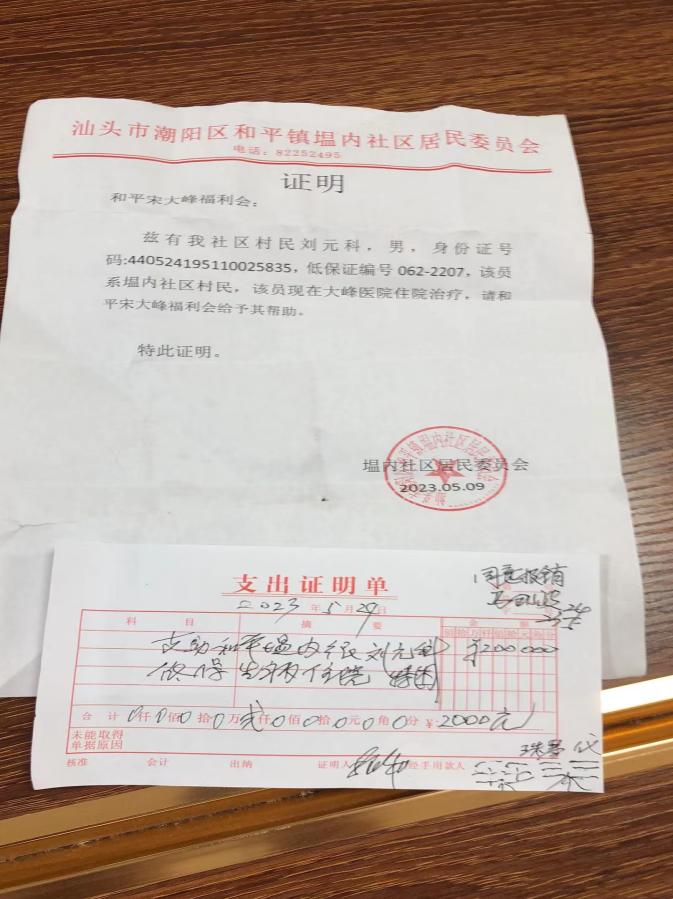 汕头市潮阳区和平镇塭内社区居民委员会
电话：82252495
证明
和平宋大峰福利会：
兹有我社区村民刘元科，男，身份证号
码:440524195110025835，低保证编号 062-2207，该员
系塭内社区村民，该员现在大峰医院住院治疗，请和
平宋大峰福利会给予其帮助。
特此证明。
塭内社区居民委员会
2023.05.09
同意报销
支出证明单
2023年5月29日
科目 摘要 金额
支助和平塭内 刘元科 200000
低保 生病住院 特困
合计 0仟0佰0拾0万贰仟0佰0拾0元0角0分 ¥2000元
未能取得
单据原因
核准 会计 出纳 证明人 经手用款人